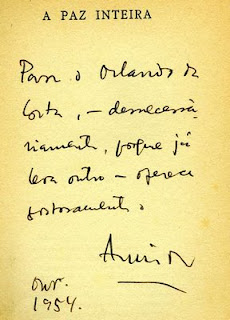 A PAZ INTEIRA
Para o Orlando da
Costa, – desnecessà-
riamente, porque já
leva outro – oferece
gostosamente o
Armindo
Out.
1954.